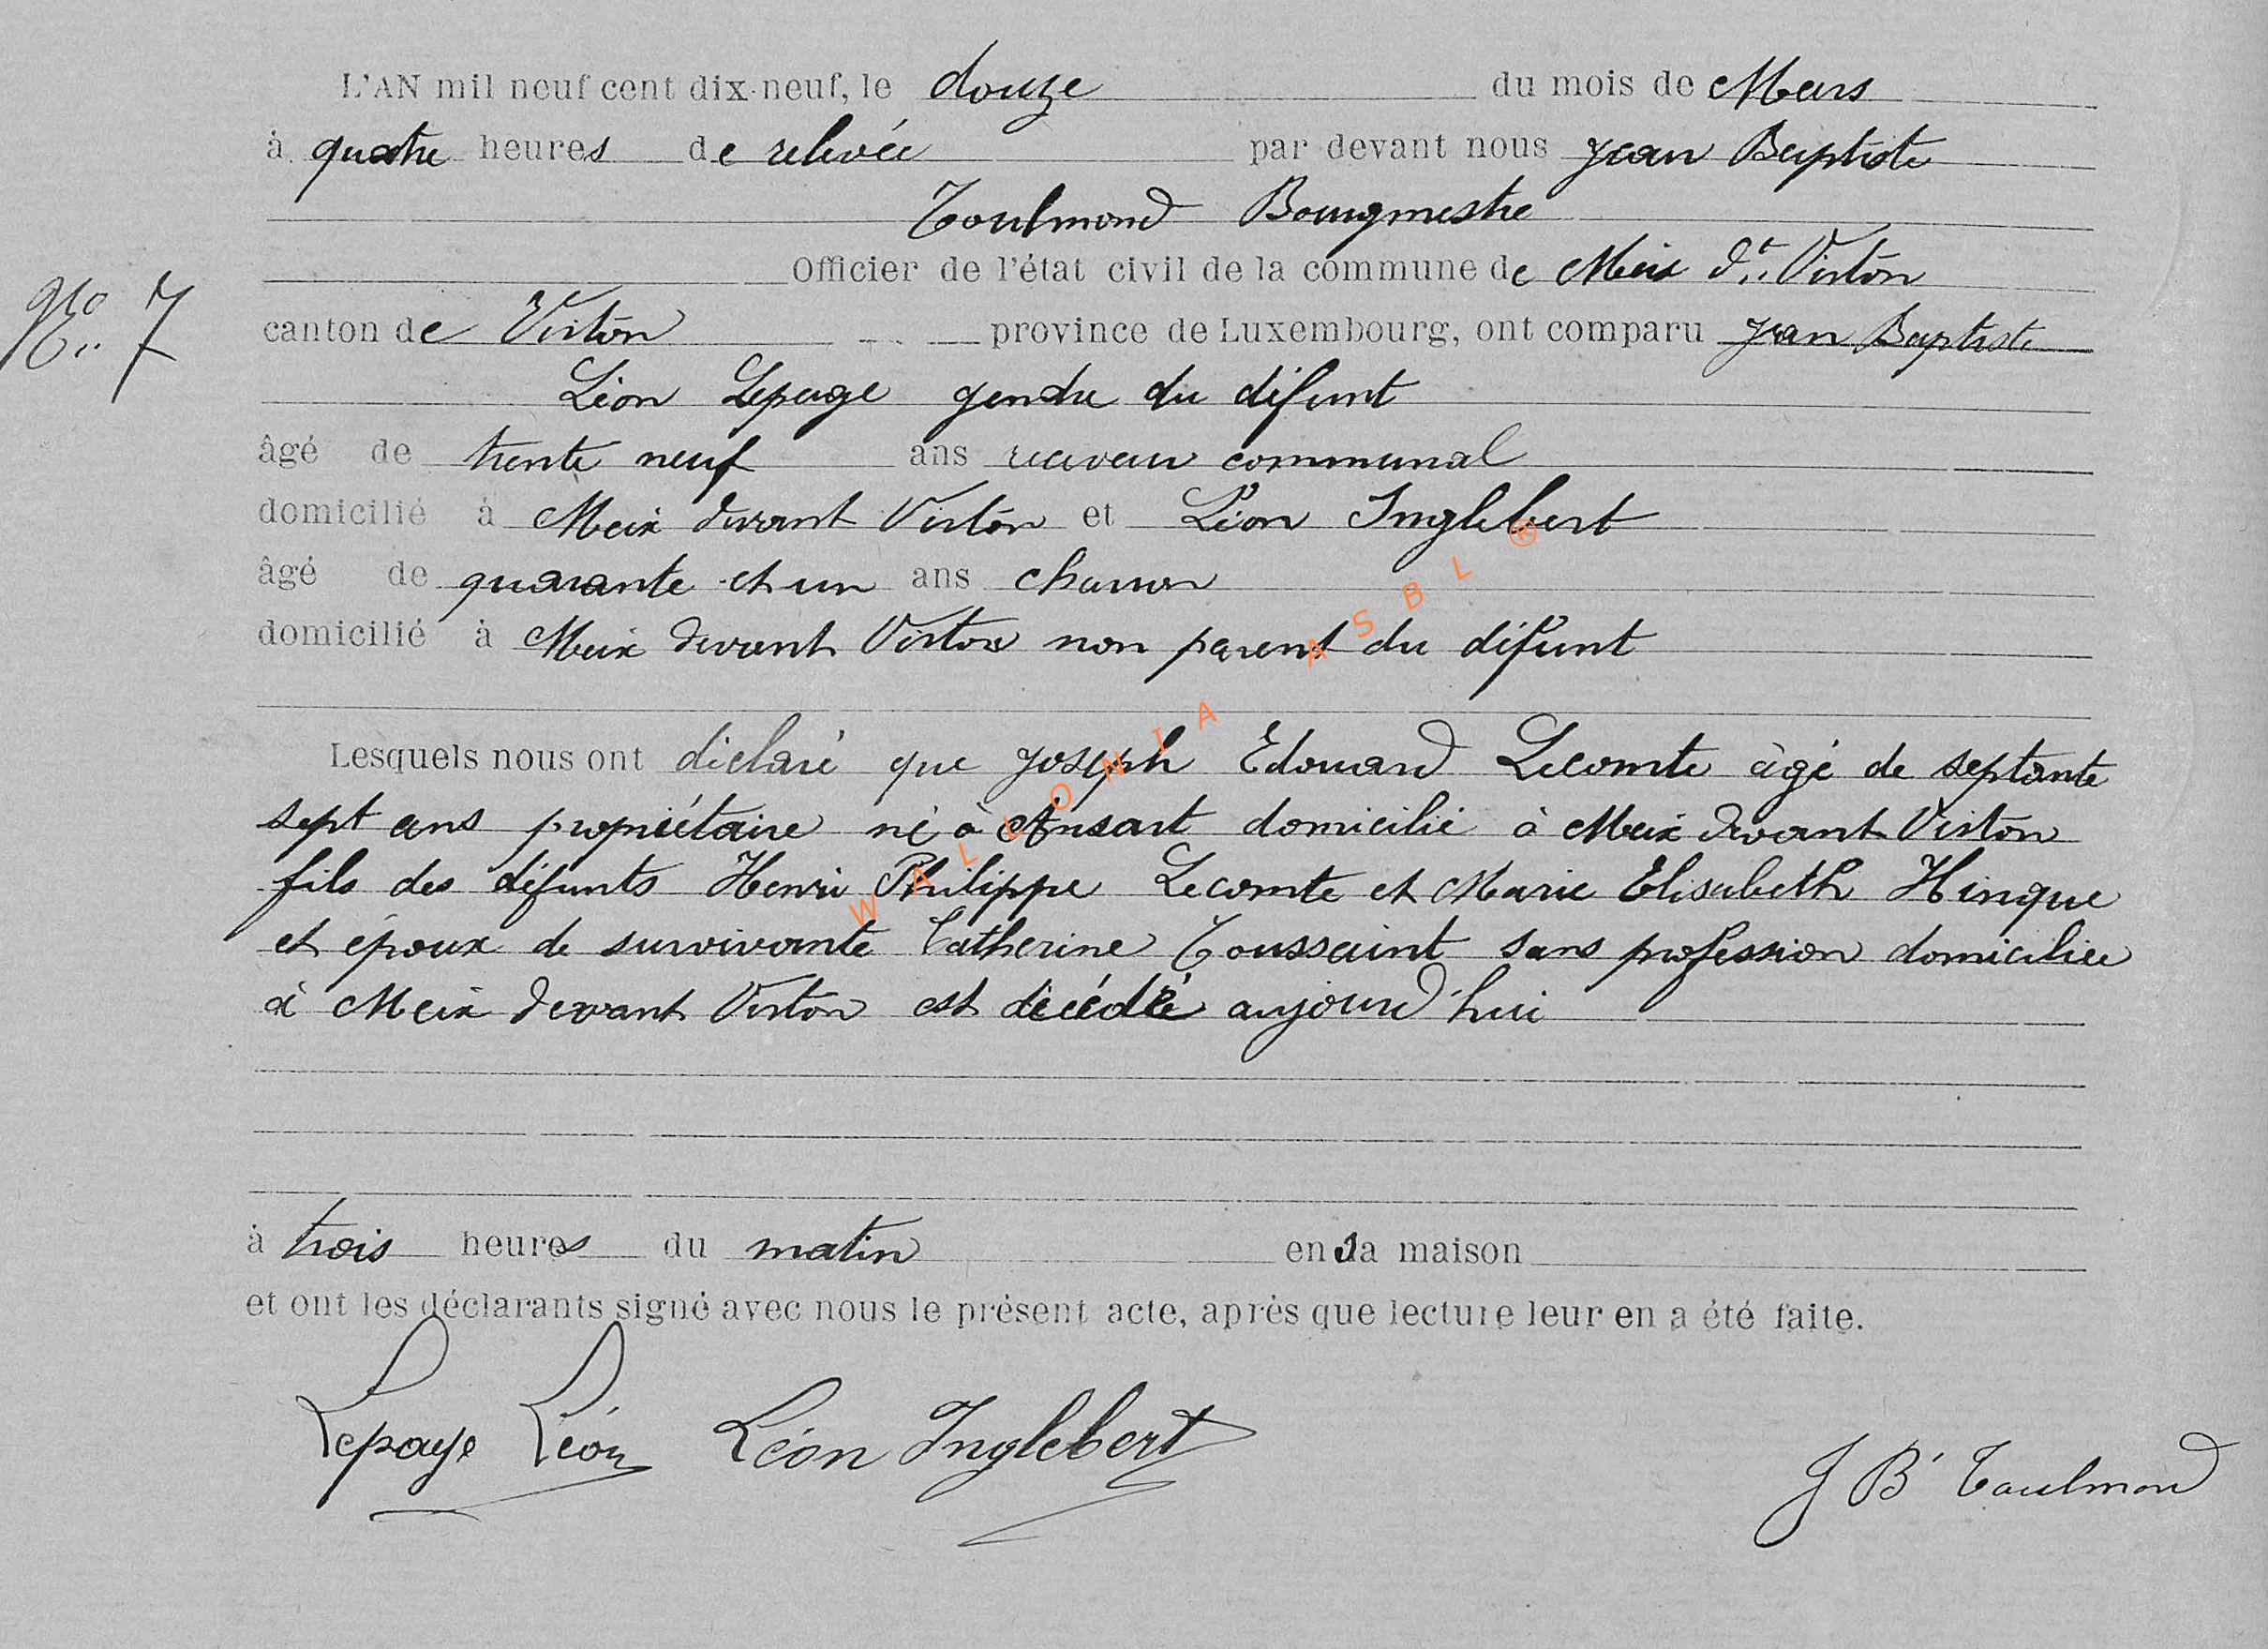 L'AN mil neuf cent dix-neuf, le douze du mois de Mars
à quatre heures de relevée par devant nous Jean Baptiste
Toulmond Bourgmestre
Officier de l'état civil de la commune de Meix dt Virton
No 7
canton de Virton province de Luxembourg, ont comparu Jean Baptiste
Léon Lepage gendre du défunt
âgé de trente neuf ans receveur communal
domicilié à Meix devant Virton et Léon Inglebert
âgé de quarante et un ans charron
domicilié à Meix devant Virton non parent du défunt
Lesquels nous ont déclaré que Joseph Edouard Lecomte âgé de septante
sept ans propriétaire né à Ansart domicilié à Meix devant Virton
fils des défunts Henri Philippe Lecomte et Marie Elisabeth Hinque
et époux de survivante Catherine Toussaint sans profession domiciliée
à Meix devant Virton est décédé aujourd'hui
à trois heures du matin en sa maison
et ont les déclarants signé avec nous le présent acte, après que lecture leur en a été faite.
Lepage Léon Léon Inglebert J Bte Toulmond
WALLONIA ASBL ®